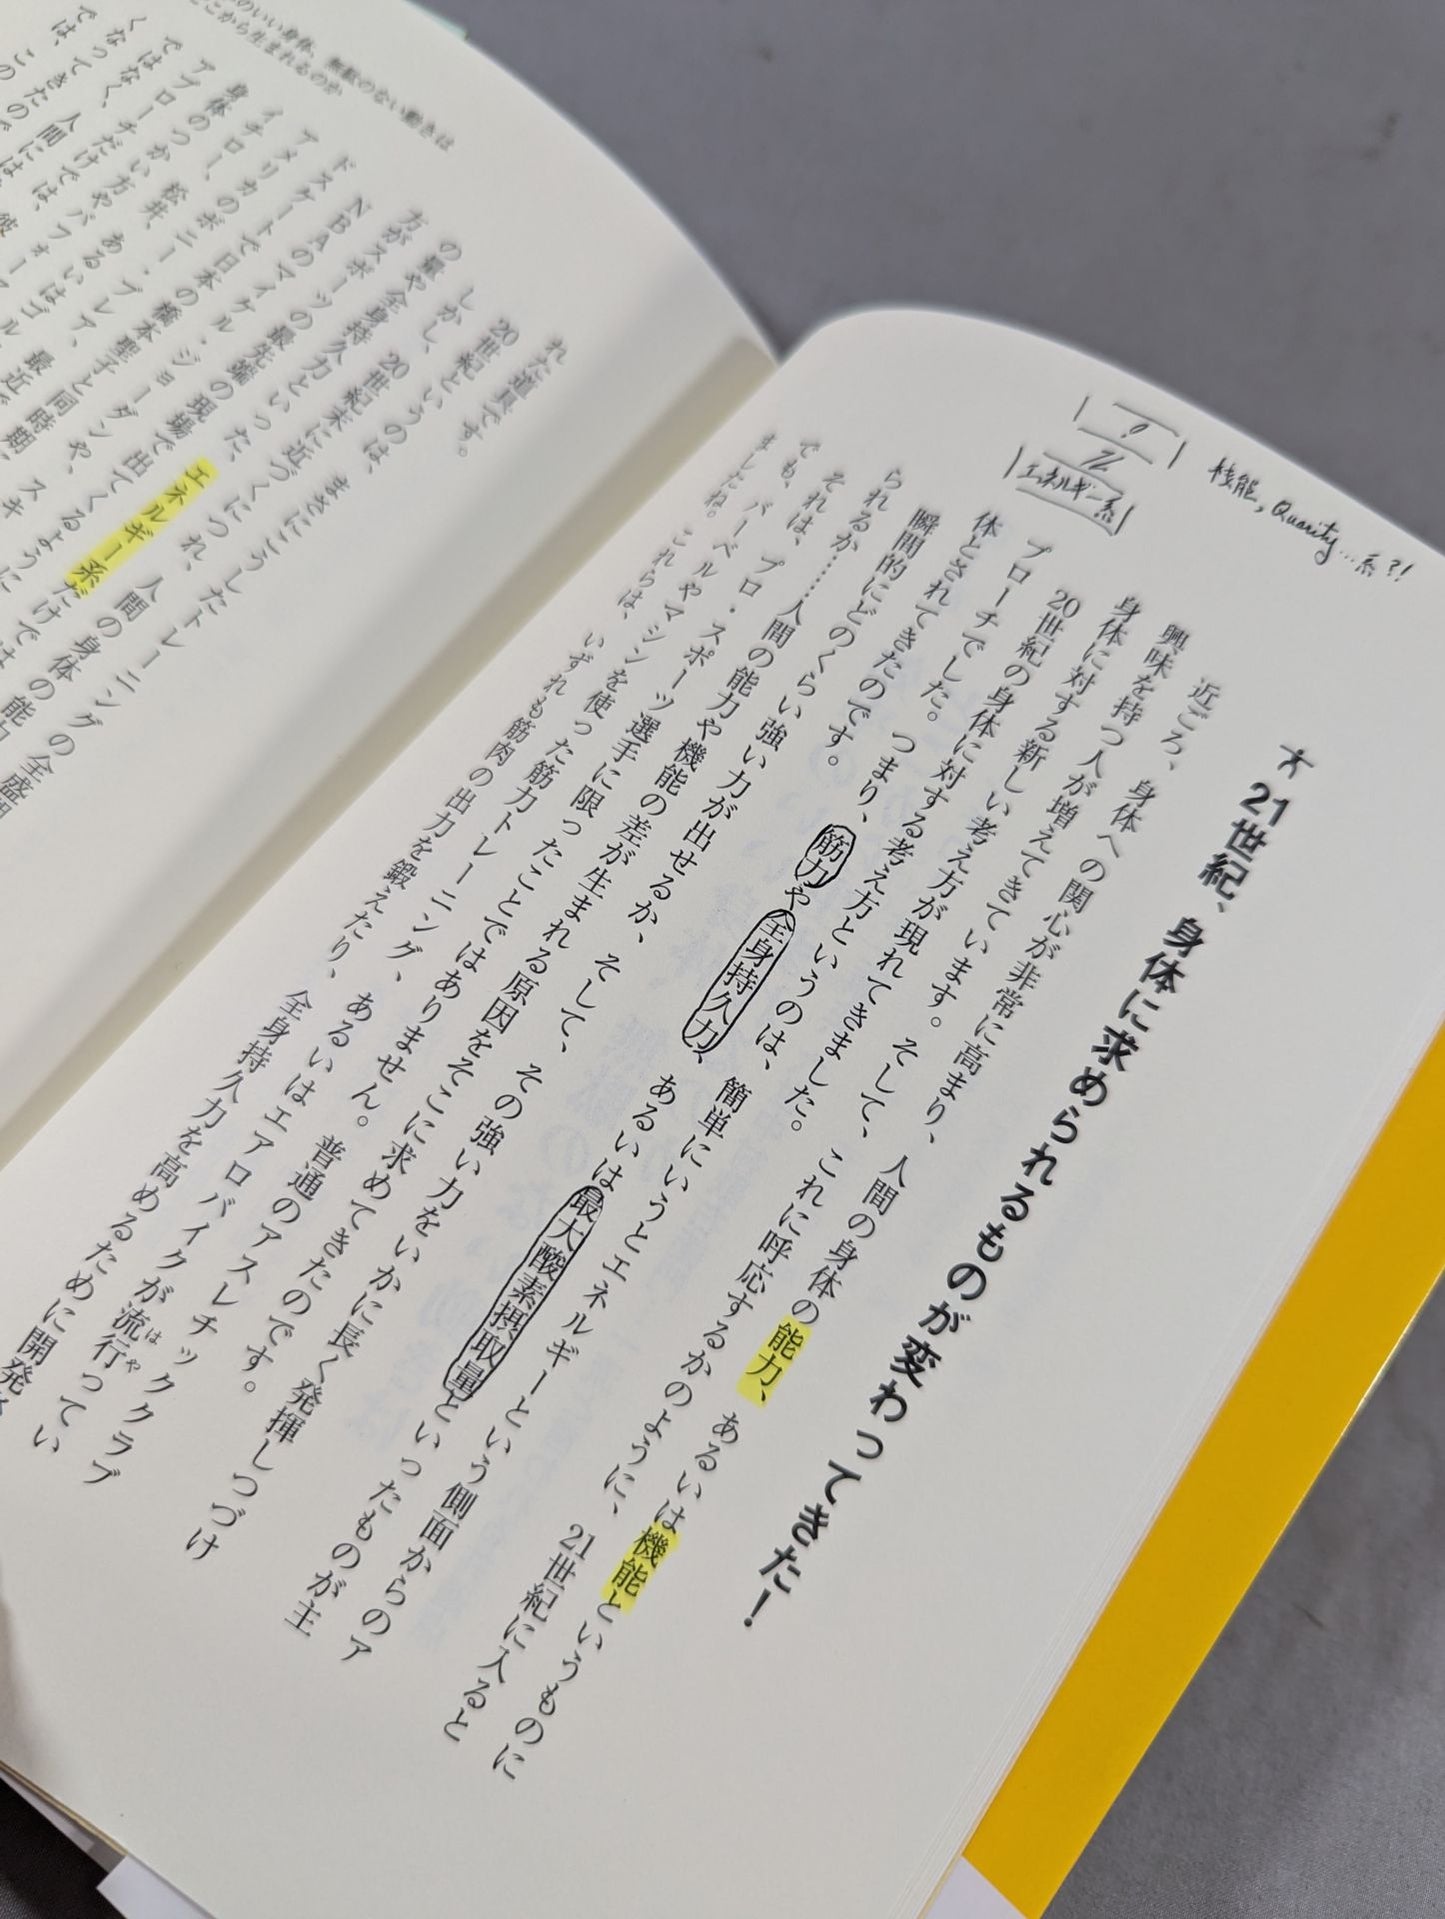 機能, Quarity…系?!
エネルギー系
21世紀、身体に求められるものが変わってきた！
近ごろ、身体への関心が非常に高まり、人間の身体の能力、あるいは機能というものに
興味を持つ人が増えてきています。そして、これに呼応するかのように、21世紀に入ると
身体に対する新しい考え方が現れてきました。
20世紀の身体に対する考え方というのは、簡単にいうとエネルギーという側面からのア
プローチでした。つまり、筋力や全身持久力、あるいは最大酸素摂取量といったものが主
体とされてきたのです。
瞬間的にどのくらい強い力が出せるか、そして、その強い力をいかに長く発揮しつづけ
られるか……人間の能力や機能の差が生まれる原因をそこに求めてきたのです。
それは、プロ・スポーツ選手に限ったことではありません。普通のアスレチッククラブ
でも、バーベルやマシンを使った筋力トレーニング、あるいはエアロバイクが流行ってい
はや
ましたね。これらは、いずれも筋肉の出力を鍛えたり、全身持久力を高めるために開発さ
れた道具です。
20世紀というのは、まさにこうしたトレーニングの全盛期
しかし、20世紀末に近づくにつれ、人間の身体の能力
の量や全身持久力といった、エネルギー系だけでは
方がスポーツの最先端の現場で出てくるように
NBAのマイケル・ジョーダンや、
ドスケートで日本の橋本聖子と同時期、スキ
アメリカのボニー・ブレア、
イチロー、松井、あるいはゴル
身体のつかい方やパフォー
アプローチだけでは、
ではなく、人間には
くなってきたので
では、この
のいい身体、無駄のない動きは
どこから生まれるのか